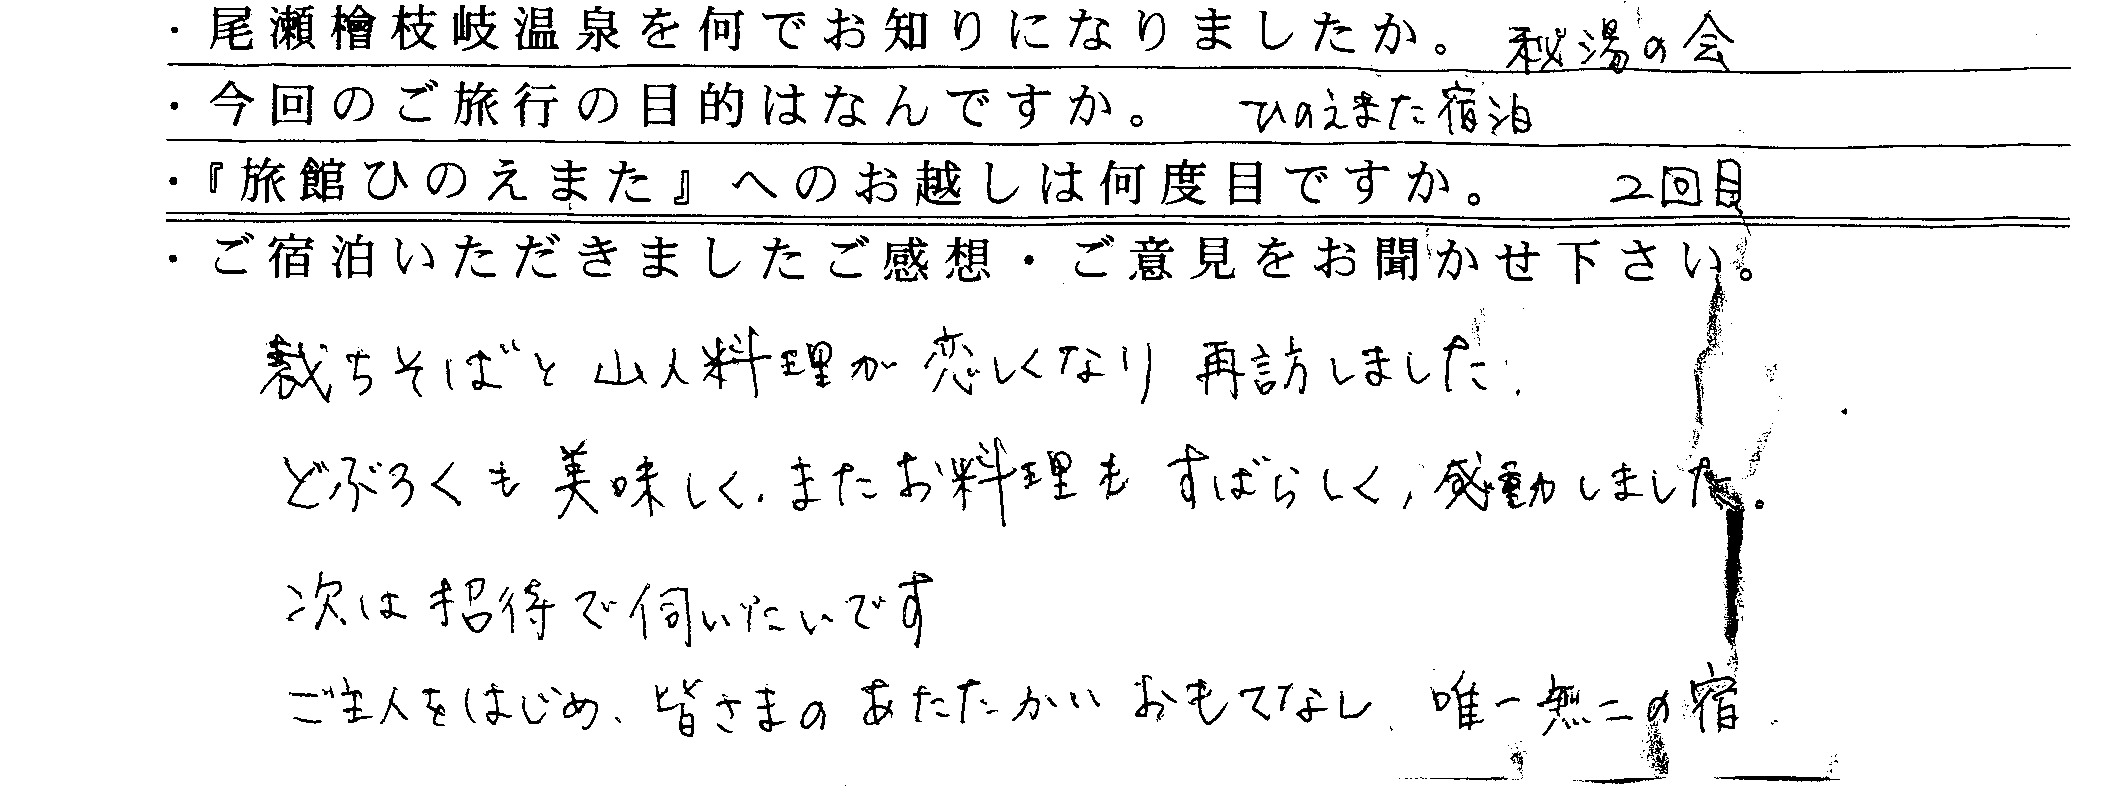 ・尾瀬檜枝岐温泉を何でお知りになりましたか。 秘湯の会
・今回のご旅行の目的はなんですか。 ひのえまた宿泊
・『旅館ひのえまた』へのお越しは何度目ですか。 2回目
・ご宿泊いただきましたご感想・ご意見をお聞かせ下さい。
裁ちそばと山人料理が恋しくなり再訪しました.
どぶろくも美味しく、またお料理もすばらしく、感動しました.
次は招待で伺いたいです
ご主人をはじめ、皆さまのあたたかいおもてなし、唯一無二の宿.